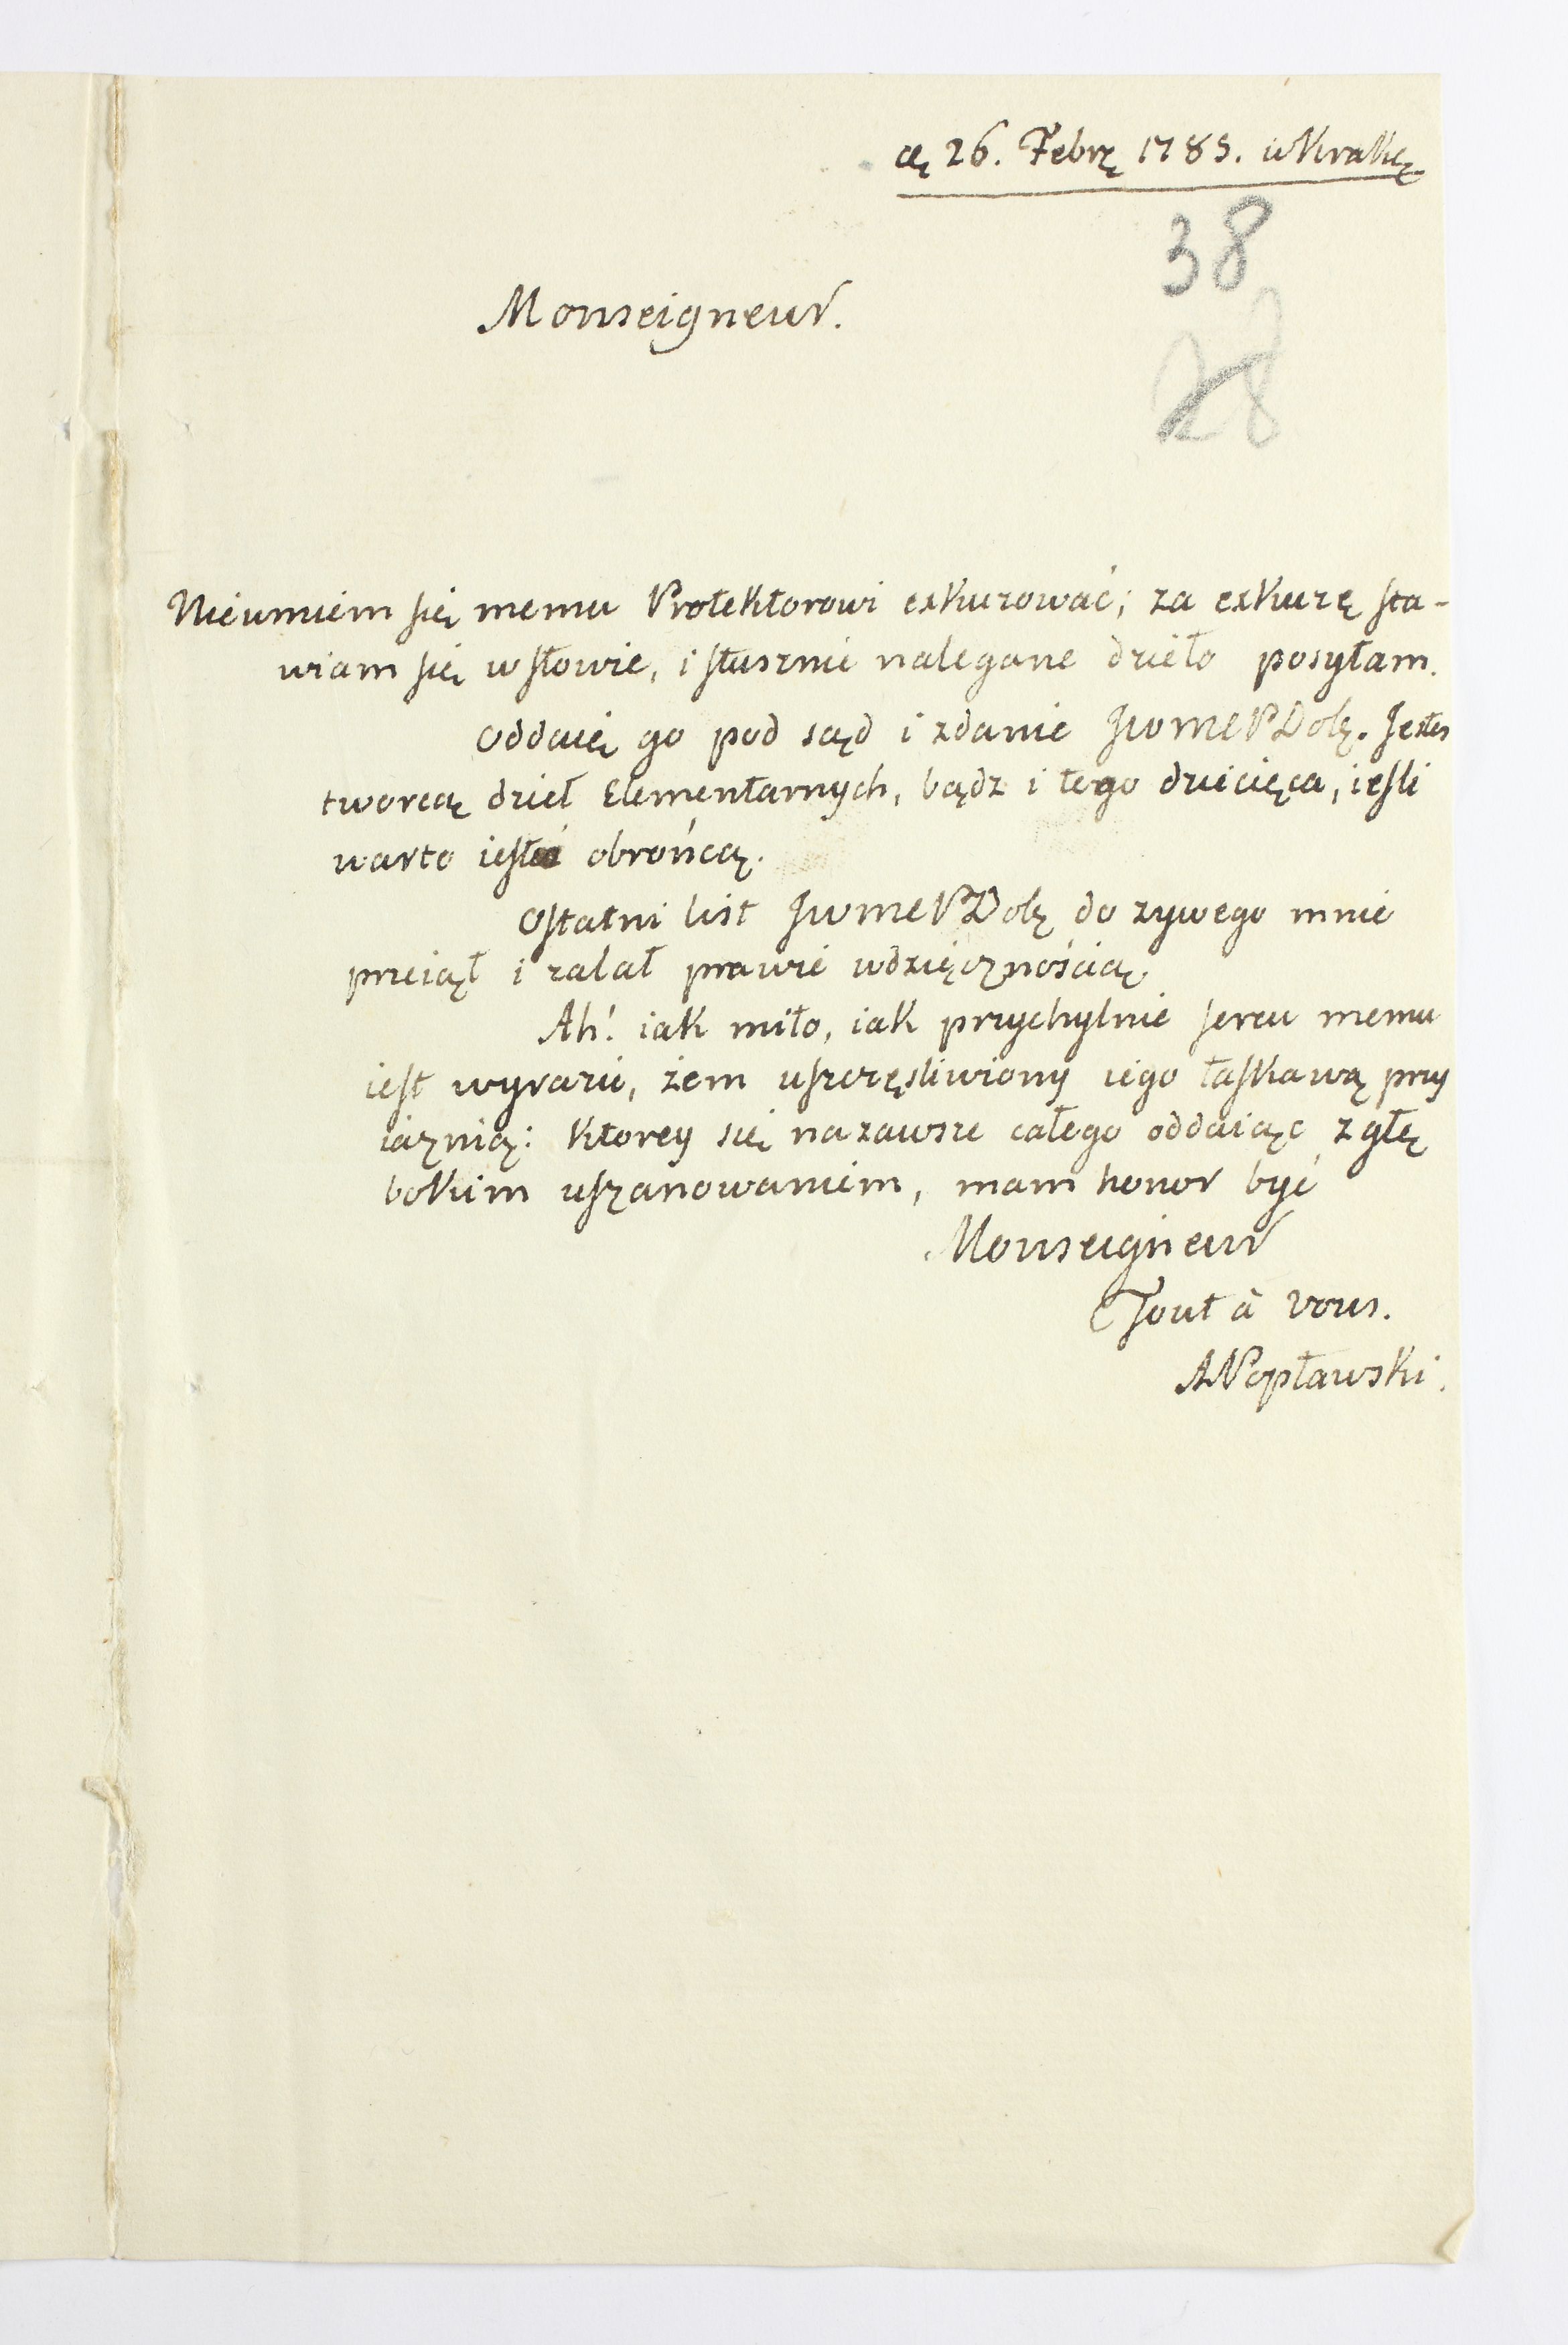 26. Febrę 1785. w Krakę
38
28
Monseigneur.
Nieumiem się memu Protektorowi exkuzować; za exkuzę sta-
wiam się w słowie, i słusznie nalegane dzieło posyłam.
Oddaię go pod sąd i zdanie JWWMPDobę. Jesteś
tworcą dzieł Elementarnych, bądz i tego dziecięca, ieśli
warto iest obrońcą.
Ostatni list JWWMPDobę do zywego mnie
przeiął i zalał prawie wdzięcznością.
Ah! iak miło, iak przychylnie sercu memu
iest wyrazić, żem uszczęsliwiony iego łaskawą przy
iaznią: ktorey się nazawsze całego oddaiąc, z głę
bokim uszanowaniem, mam honor być
Monseigneur
Tout à vous.
APopławski.